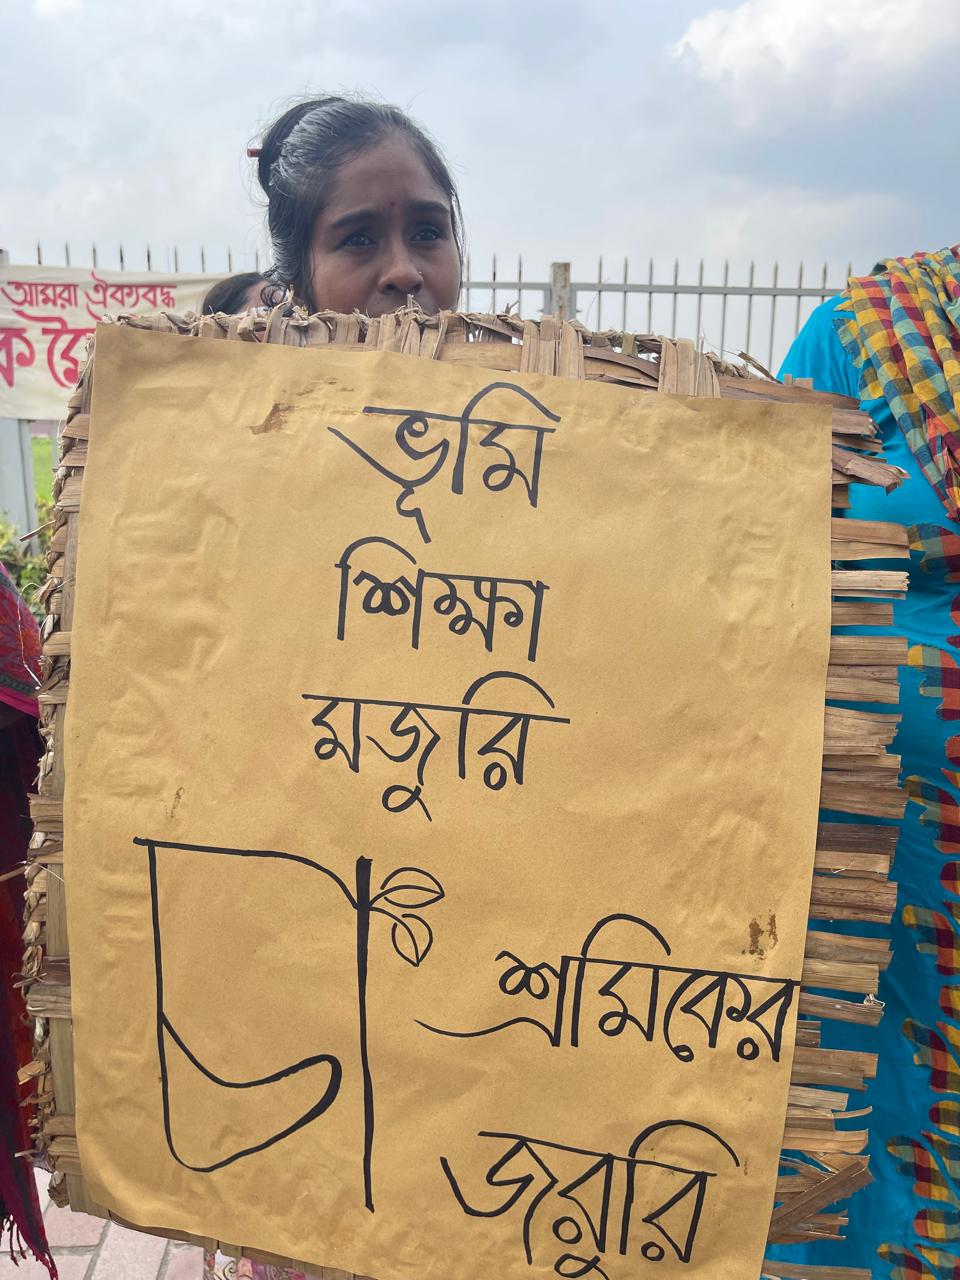 আমরা ঐক্যবদ্ধ
ভূমি
শিক্ষা
মজুরি
চা শ্রমিকের
জরুরি